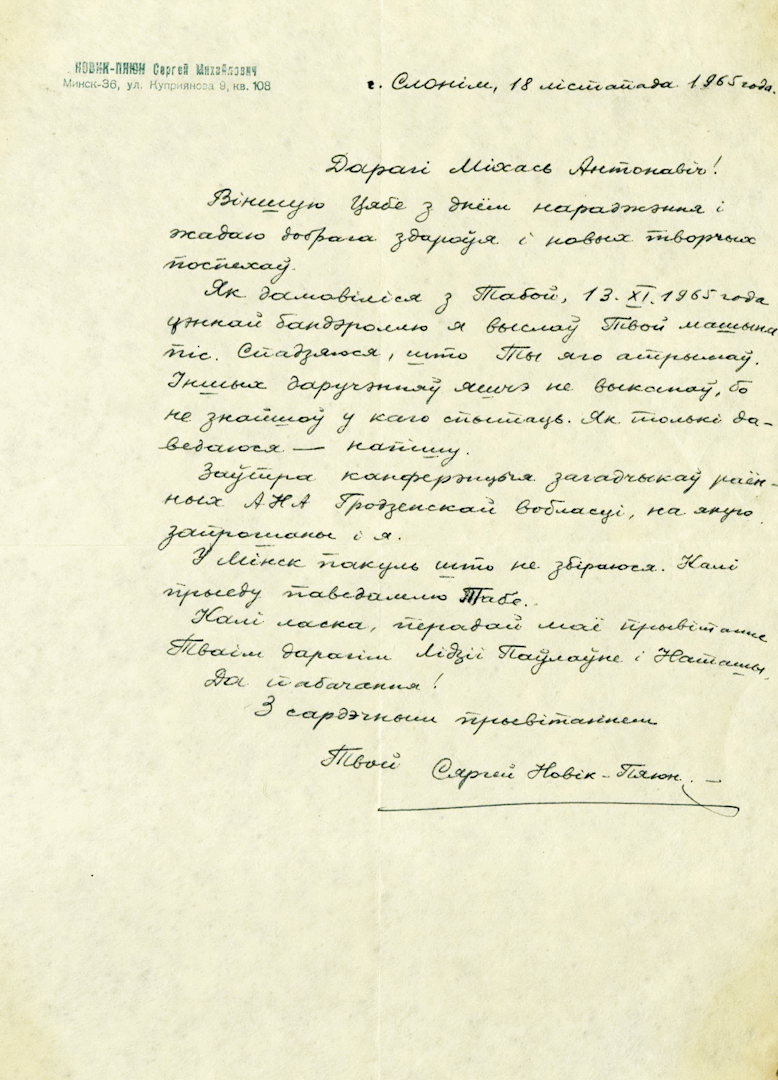 НОВИК-ПЯЮН Сергей Михайлович
Минск-36, ул. Куприянова 9, кв. 108
г. Слонім, 18 лістапада 1965 года.
Дарагі Міхась Антонавіч!
Віншую Цябе з днём нараджэння і
жадаю добрага здароўя і новых творчых
поспехаў.
Як дамовіліся з Табой, 13.XI.1965 года
цэннай бандэроллю я выслаў Твой машына
піс. Спадзяюся, што Ты яго атрымаў.
Іншых даручэнняў яшчэ не выканаў, бо
не знайшоў у каго спытаць. Як толькі да-
ведаюся — напішу.
Заўтра канферэнцыя загадчыкаў раён-
ных АНА Гродзенскай вобласці, на якую
запрошаны і я.
У Мінск пакуль што не збіраюся. Калі
прыеду паведамлю Табе.
Калі ласка, перадай маё прывітанне
Тваім дарагім Лідзіі Паўлаўне і Наташы.
Да пабачання!
З сардэчным прывітаннем
Твой Сяргей Новік-Пяюн. —